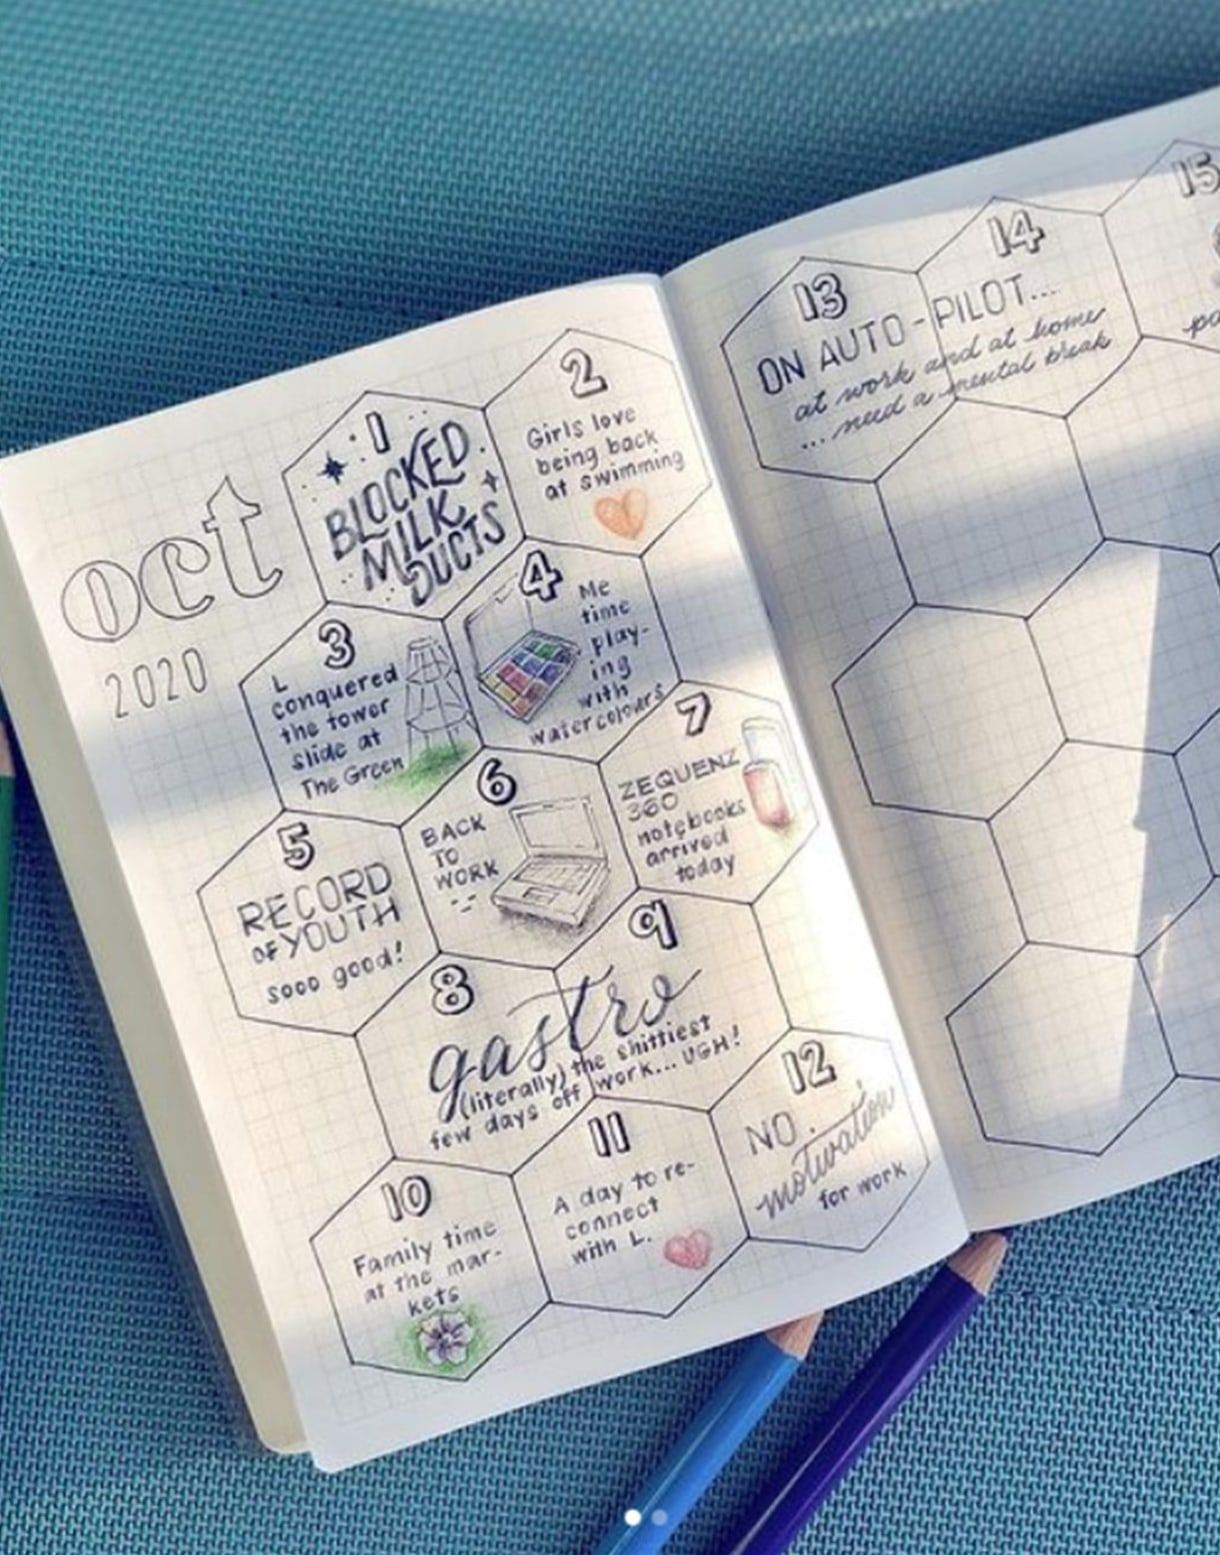 oct
2020
1
BLOCKED
MILK
DUCTS
2
Girls love
being back
at swimming
3
L
conquered
the tower
slide at
The Green
4
Me
time
play-
ing
with
watercolours
5
RECORD
OF YOUTH
sooo good!
6
BACK
TO
WORK
7
ZEQUENZ
360
notebooks
arrived
today
8
9
gastro
(literally) the shittiest
few days off work... UGH!
10
Family time
at the mar-
kets
11
A day to re-
connect
with L.
12
NO
motivation
for work
13
14
ON AUTO-PILOT...
at work and at home
... need a mental break
15